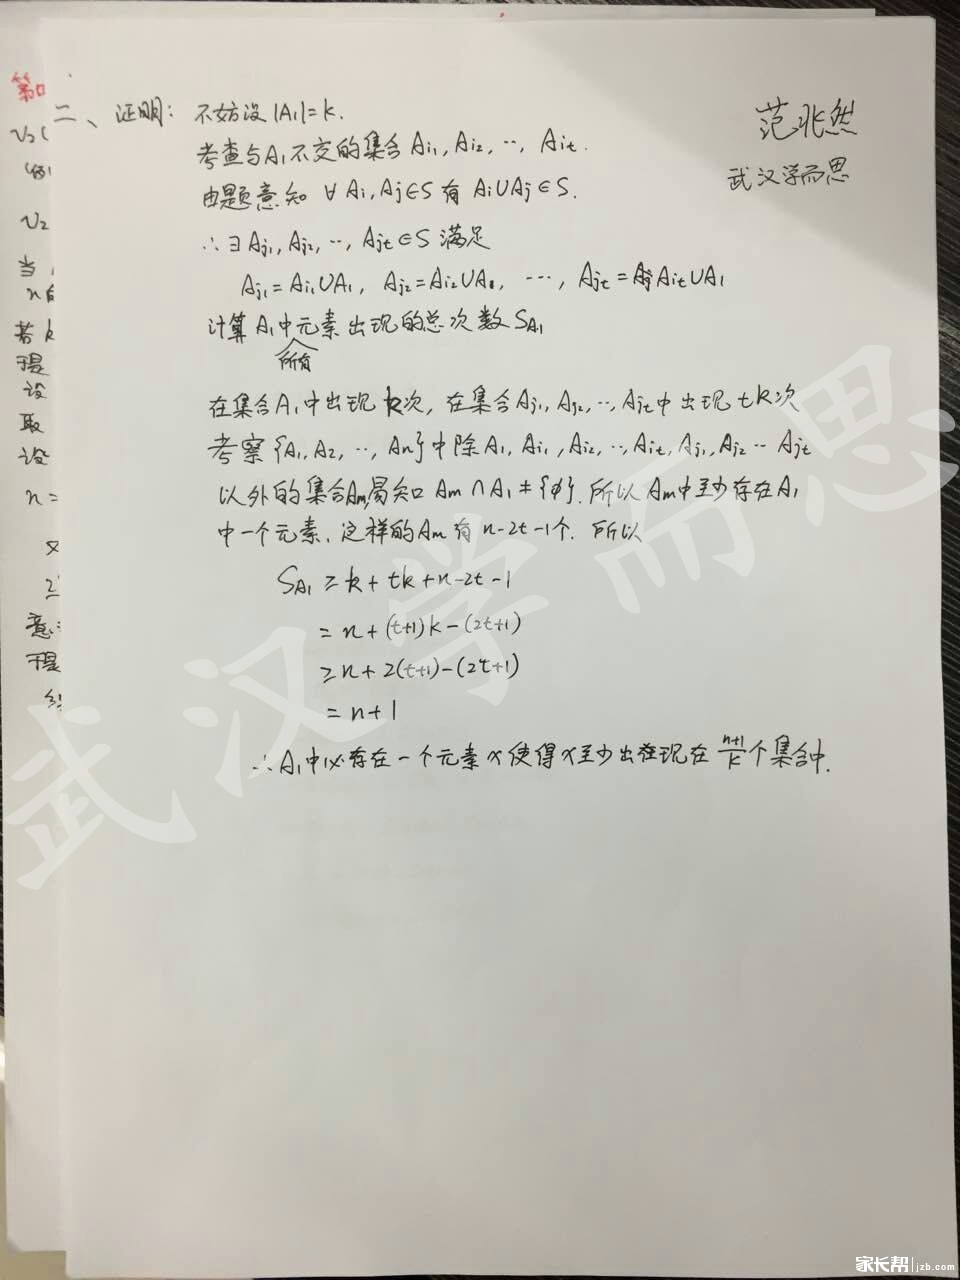 第口
二、证明: 不妨设|A₁|=k.
范兆然
考查与A₁不交的集合 Ai₁, Ai₂, …, Ait.
武汉学而思
由题意知 ∀ Ai, Aj∈S 有 Ai∪Aj∈S.
∴∃ Aj₁, Aj₂, …, Ajt∈S 满足
Aj₁=Ai₁∪A₁, Aj₂=Ai₂∪A₁, …, Ajt=Ait∪A₁
计算A₁中元素出现的总次数 SA₁
所有
在集合A₁中出现k次, 在集合Aj₁, Aj₂, …, Ajt中出现tk次
考察{A₁, A₂, …, An}中除A₁, Ai₁, Ai₂, …, Ait, Aj₁, Aj₂ … Ajt
以外的集合Am,易知 Am∩A₁≠{φ}. 所以Am中至少存在A₁
中一个元素, 这样的Am有n-2t-1个. 所以
SA₁ ≥ k+tk+n-2t-1
= n+(t+1)k-(2t+1)
≥ n+2(t+1)-(2t+1)
= n+1
∴A₁中必存在一个元素x使得x至少出现在 (n+1)/k 个集合中.
武汉学而思
家长帮 jzb.com